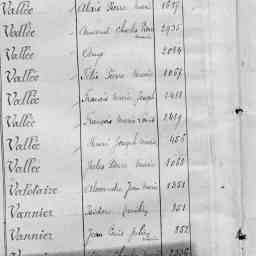 Vallée Alexis Pierre Marie 1857
Vallée Amand Charles Pierre Marie 2935
Vallée Ange 2024
Vallée Félix Pierre Marie 1067
Vallée Francois Marie Joseph 2418
Vallée François Marie 2419
Vallée Henri Joseph Marie 456
Vallée Jules Pierre Marie 1068
Valotaire Alexandre Jean Marie 1351
Vannier Isidore 951
Vannier Jean Louis Marie 952
Vannier